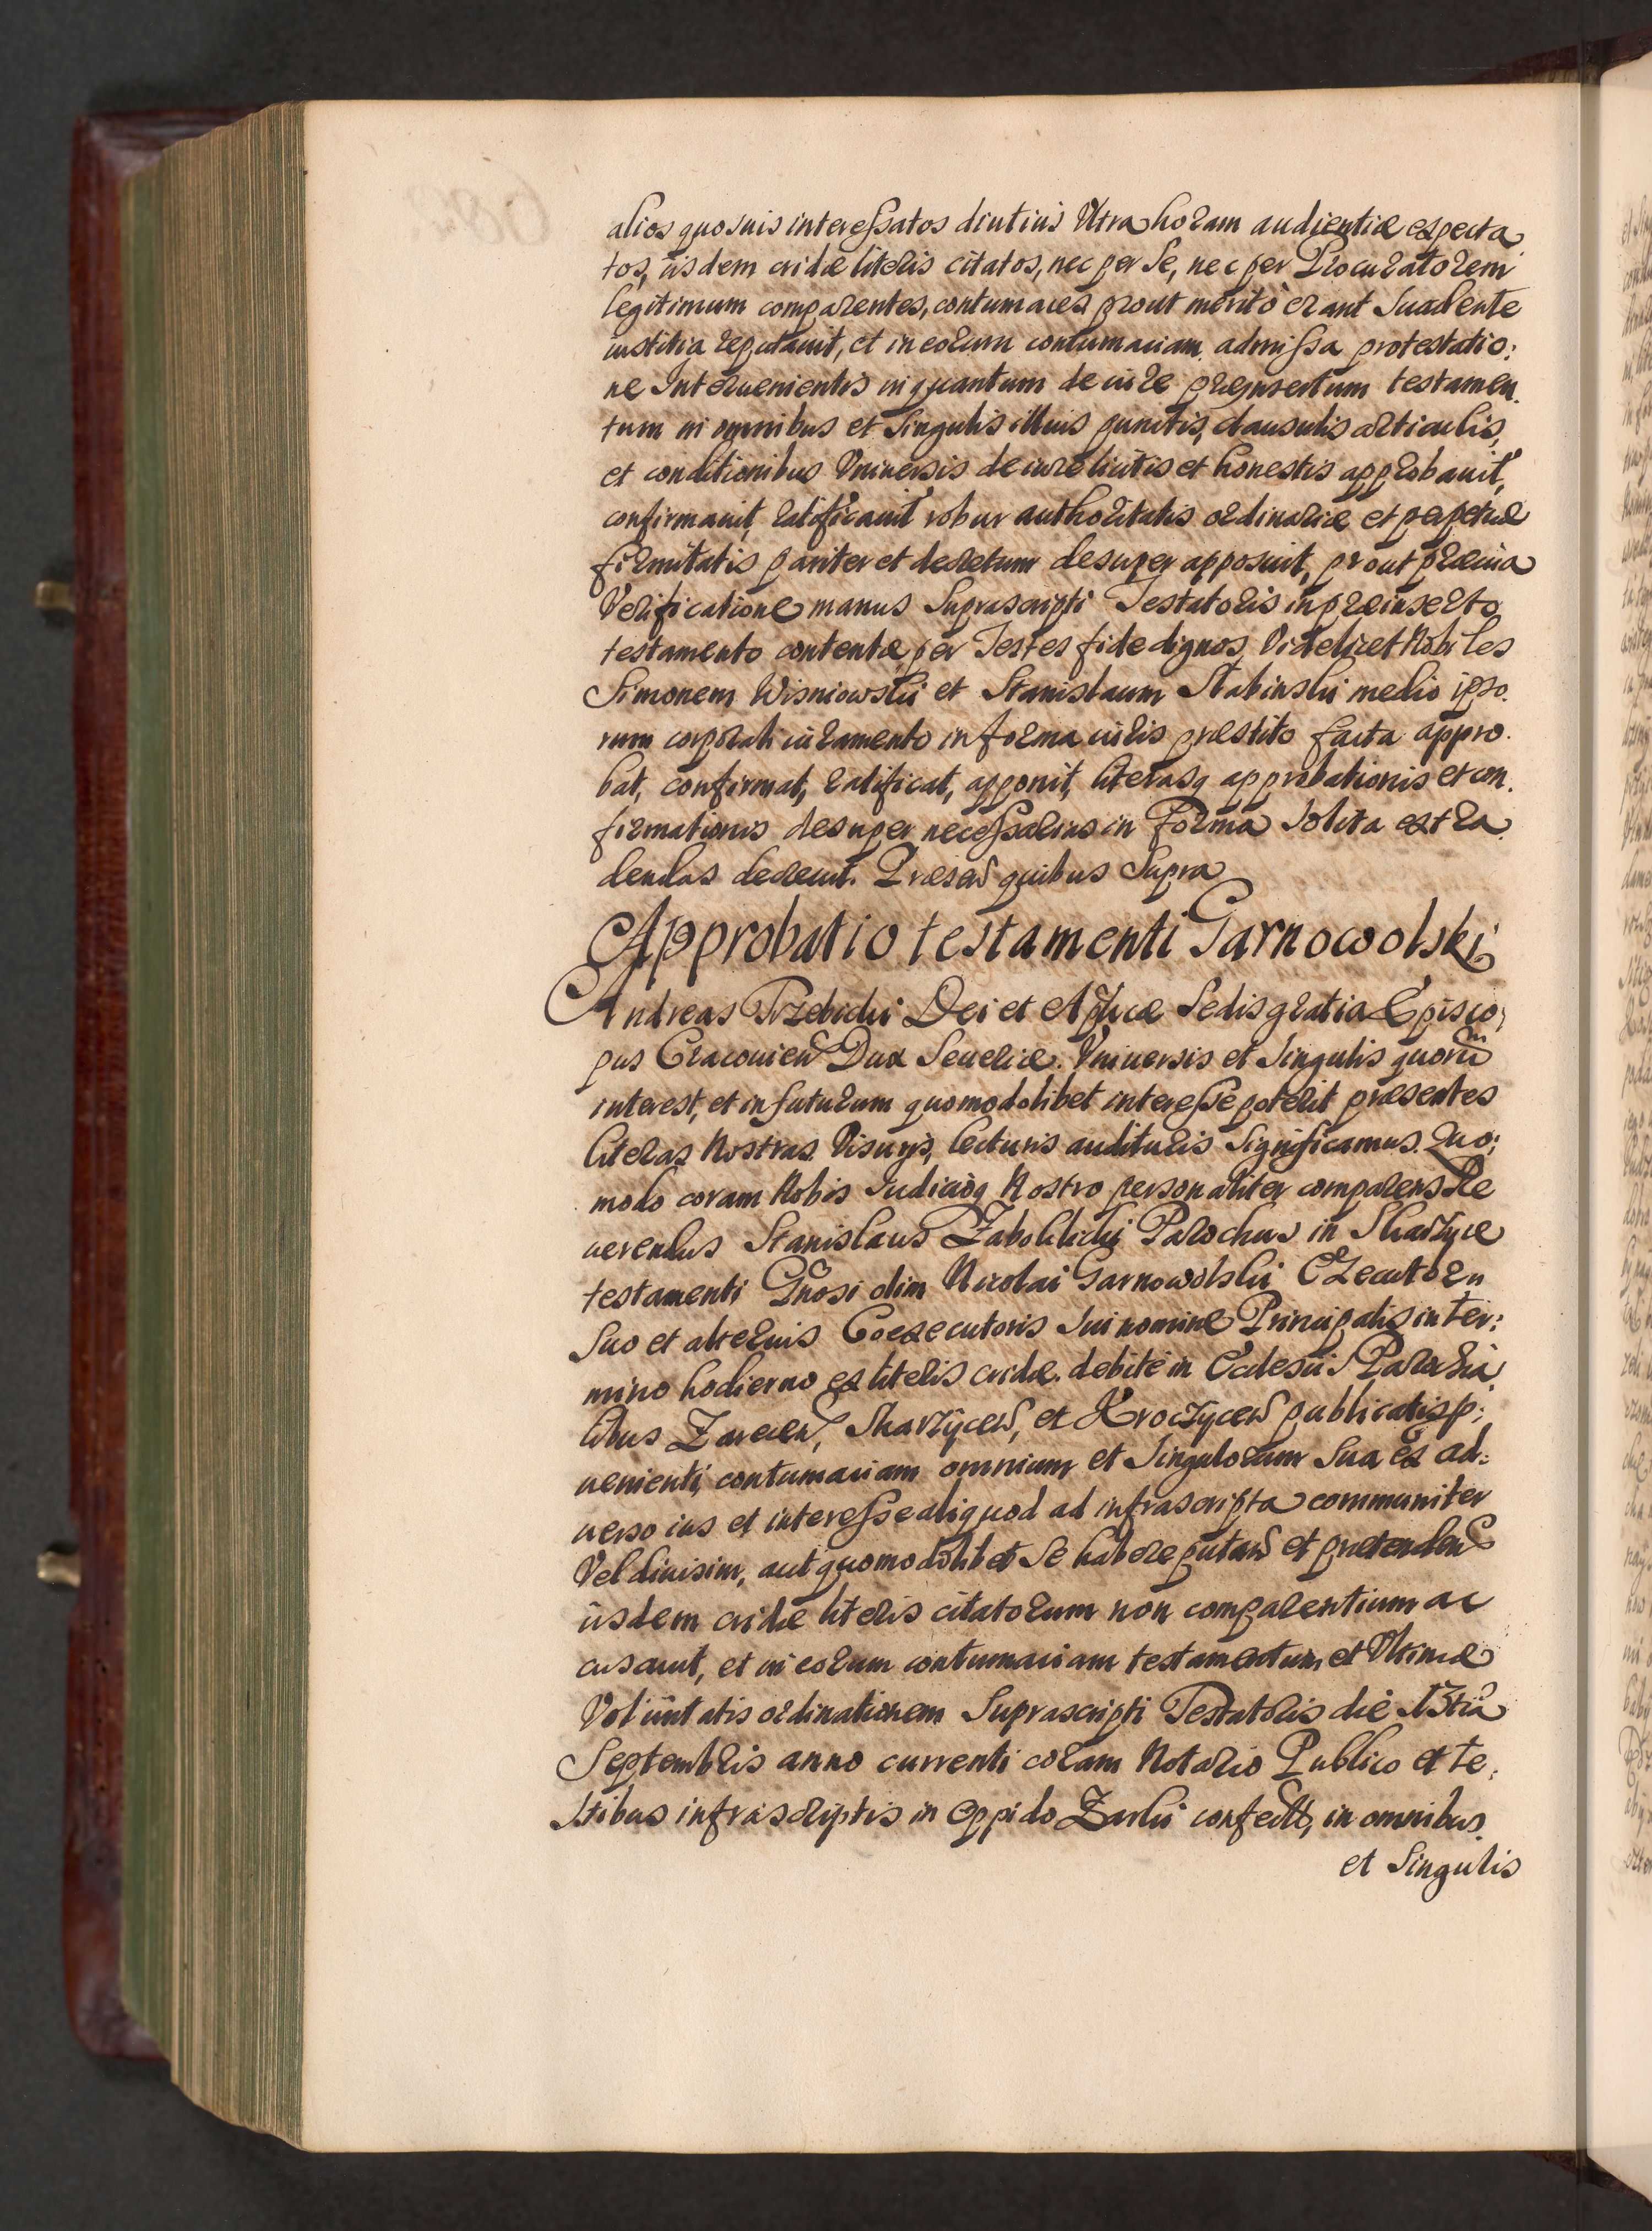 alios quosuis interessatos diutius Vltra horam audientiæ expecta
tos, iisdem cridæ literis citatos, nec per Se, nec per Procuratorem
legitimum comparentes, contumaces prout meritò erant Suadente
iustitia reputauit, et in eorum contumaciam admissa protestatio:
ne Interuenientis inquantum de iure præinsertum testamen.
tum in omnibus et Singulis illius punctis, clausulis articulis,
et conditionibus Vniuersis de iure licitis et honestis approbauit,
confirmauit, ratificauit robur authoritatis ordinariæ et perpetuæ
firmitatis pariter et decretum desuper apposuit, prout præuia
Verificatione manus Suprascripti Testatoris in præinserto
testamento contentæ, per Testes fide dignos, Videlicet Nobiles
Simonem Wisniowski et Stanislaum Slabinski medio ipso.
rum corporali iuramento in forma iuris præstito facta appro.
bat, confirmat, ratificat, apponit, literasq approbationis et con.
firmationis desuper necessarias in Forma Solita extra.
dendas decreuit. Præsen quibus Supra
Approbatio testamenti Garnowolski
Andreas Trzebicki Dei et Aplicæ Sedis gratia Episco,
pus Cracouien Dux Seueriæ. Vniuersis et Singulis quorū
interest, et in futurum quomodolibet interesse poterit præsentes
literas Nostras Visuris, lecturis audituris Significamus. Quo;
modo coram Nobis Iudicioq Nostro personaliter comparens Re
uerendus Stanislaus Zabokliczki Parochus in Skarżyce
testamenti Gnosi olim Nicolai Garnowolski Executorn
Suo et alterius Coexecutoris Sui nomine Principalis in ter:
mino hodierno ex literis cridæ debite in Ecclesiis Parochia.
libus Zarecen, Skarzycen, et Kroczycen publicatis p:
uenienti, contumaciam omnium et Singulorum Sua ex ad:
uerso ius et interesse aliquod ad infrascripta communiter
Vel diuisim, aut quomodolibet Se habere putan et prætenden
iisdem cridæ literis citatorum non comparentium ac
cusauit, et in eorum contumaciam testamentum et Vltimæ
Voluntatis ordinationem Suprascripti Testatoris die 13tia
Septembris anno currenti coram Notario Publico et te,
stibus infrascriptis in Oppido Zarki confect, in omnibus
et Singulis